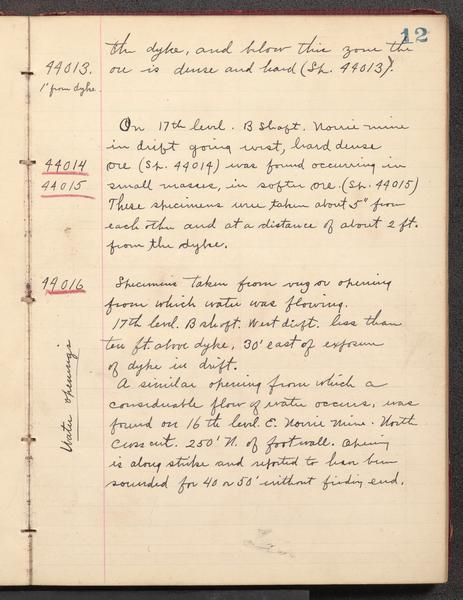 12
the dyke, and below this zone the
44013. ore is dense and hard (Sp. 44013).
1' from dyke.
On 17th level. B Shaft. Norrie mine
in drift going west, hard dense
44014 ore (Sp. 44014) was found occurring in
44015 small masses, in softer ore. (Sp. 44015)
These specimens were taken about 5" from
each other and at a distance of about 2 ft.
from the dyke.
44016 Specimens taken from vug or opening
from which water was flowing.
17th level. B shaft. West drift. less than
ten ft. above dyke, 30' east of exposure
of dyke in drift.
Water openings
A similar opening from which a
considerable flow of water occurs, was
found on 16th level. E. Norrie Mine. North
Cross cut. 250' N. of footwall. Opening
is along strike and reported to have been
sounded for 40 or 50' without finding end.